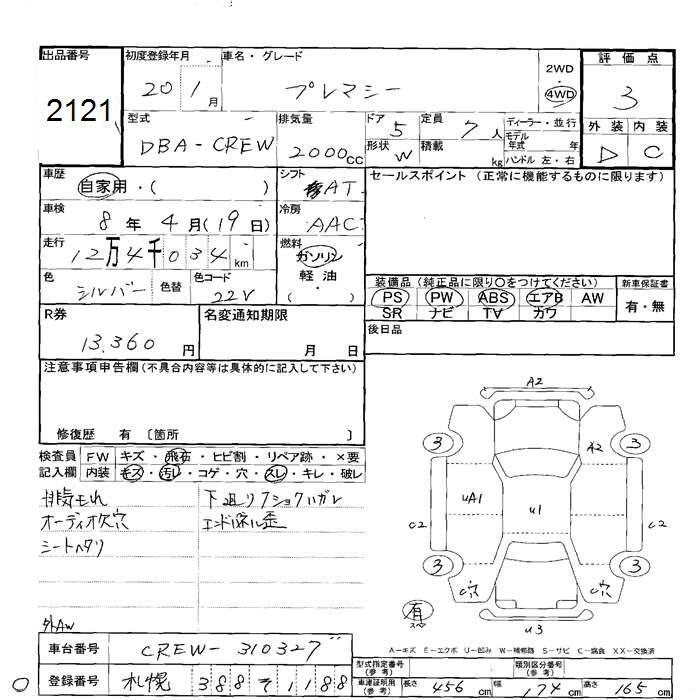 出品番号
2121
初度登録年月
20 1月
車名・グレード
プレマシー
2WD
・
4WD
評価点
3
外装 内装
D C
型式
DBA-CREW
排気量
2000cc
ドア 5
形状 W
定員 7人
積載 kg
ディーラー・並行
モデル年式 年
ハンドル 左・右
車歴
自家用・( )
シフト
AT
セールスポイント (正常に機能するものに限ります)
車検
8年 4月(19日)
冷房
AAC
走行
12万4千034km
燃料
ガソリン
軽油
( )
色
シルバー
色替
色コード
22V
装備品(純正品に限り○をつけてください)
PS PW ABS エアB AW
SR ナビ TV カワ
新車保証書
有・無
R券
13,360円
名変通知期限
月 日
後日品
注意事項申告欄(不具合内容等は具体的に記入して下さい)
修復歴 有 〔箇所 〕
検査員記入欄
FW キズ・飛石・ヒビ割・リペア跡・×要
内装 キズ・汚レ・コゲ・穴・スレ・キレ・破レ
排気モれ
オーディオ欠穴
シートヘタリ
下廻り
外AW
A2
3
3
A2
UA1
U1
C2
C2
3
3
C穴
C穴
有
U3
A-キズ E-エクボ U-凹み W-補修跡 S-サビ C-腐食 XX-交換済
車台番号
CREW-310327
登録番号
札幌 388 そ 1188
型式指定番号
(参考)
類別区分番号
(参考)
車庫証明用
(参考)
長さ 456cm 幅 174cm 高さ 165cm